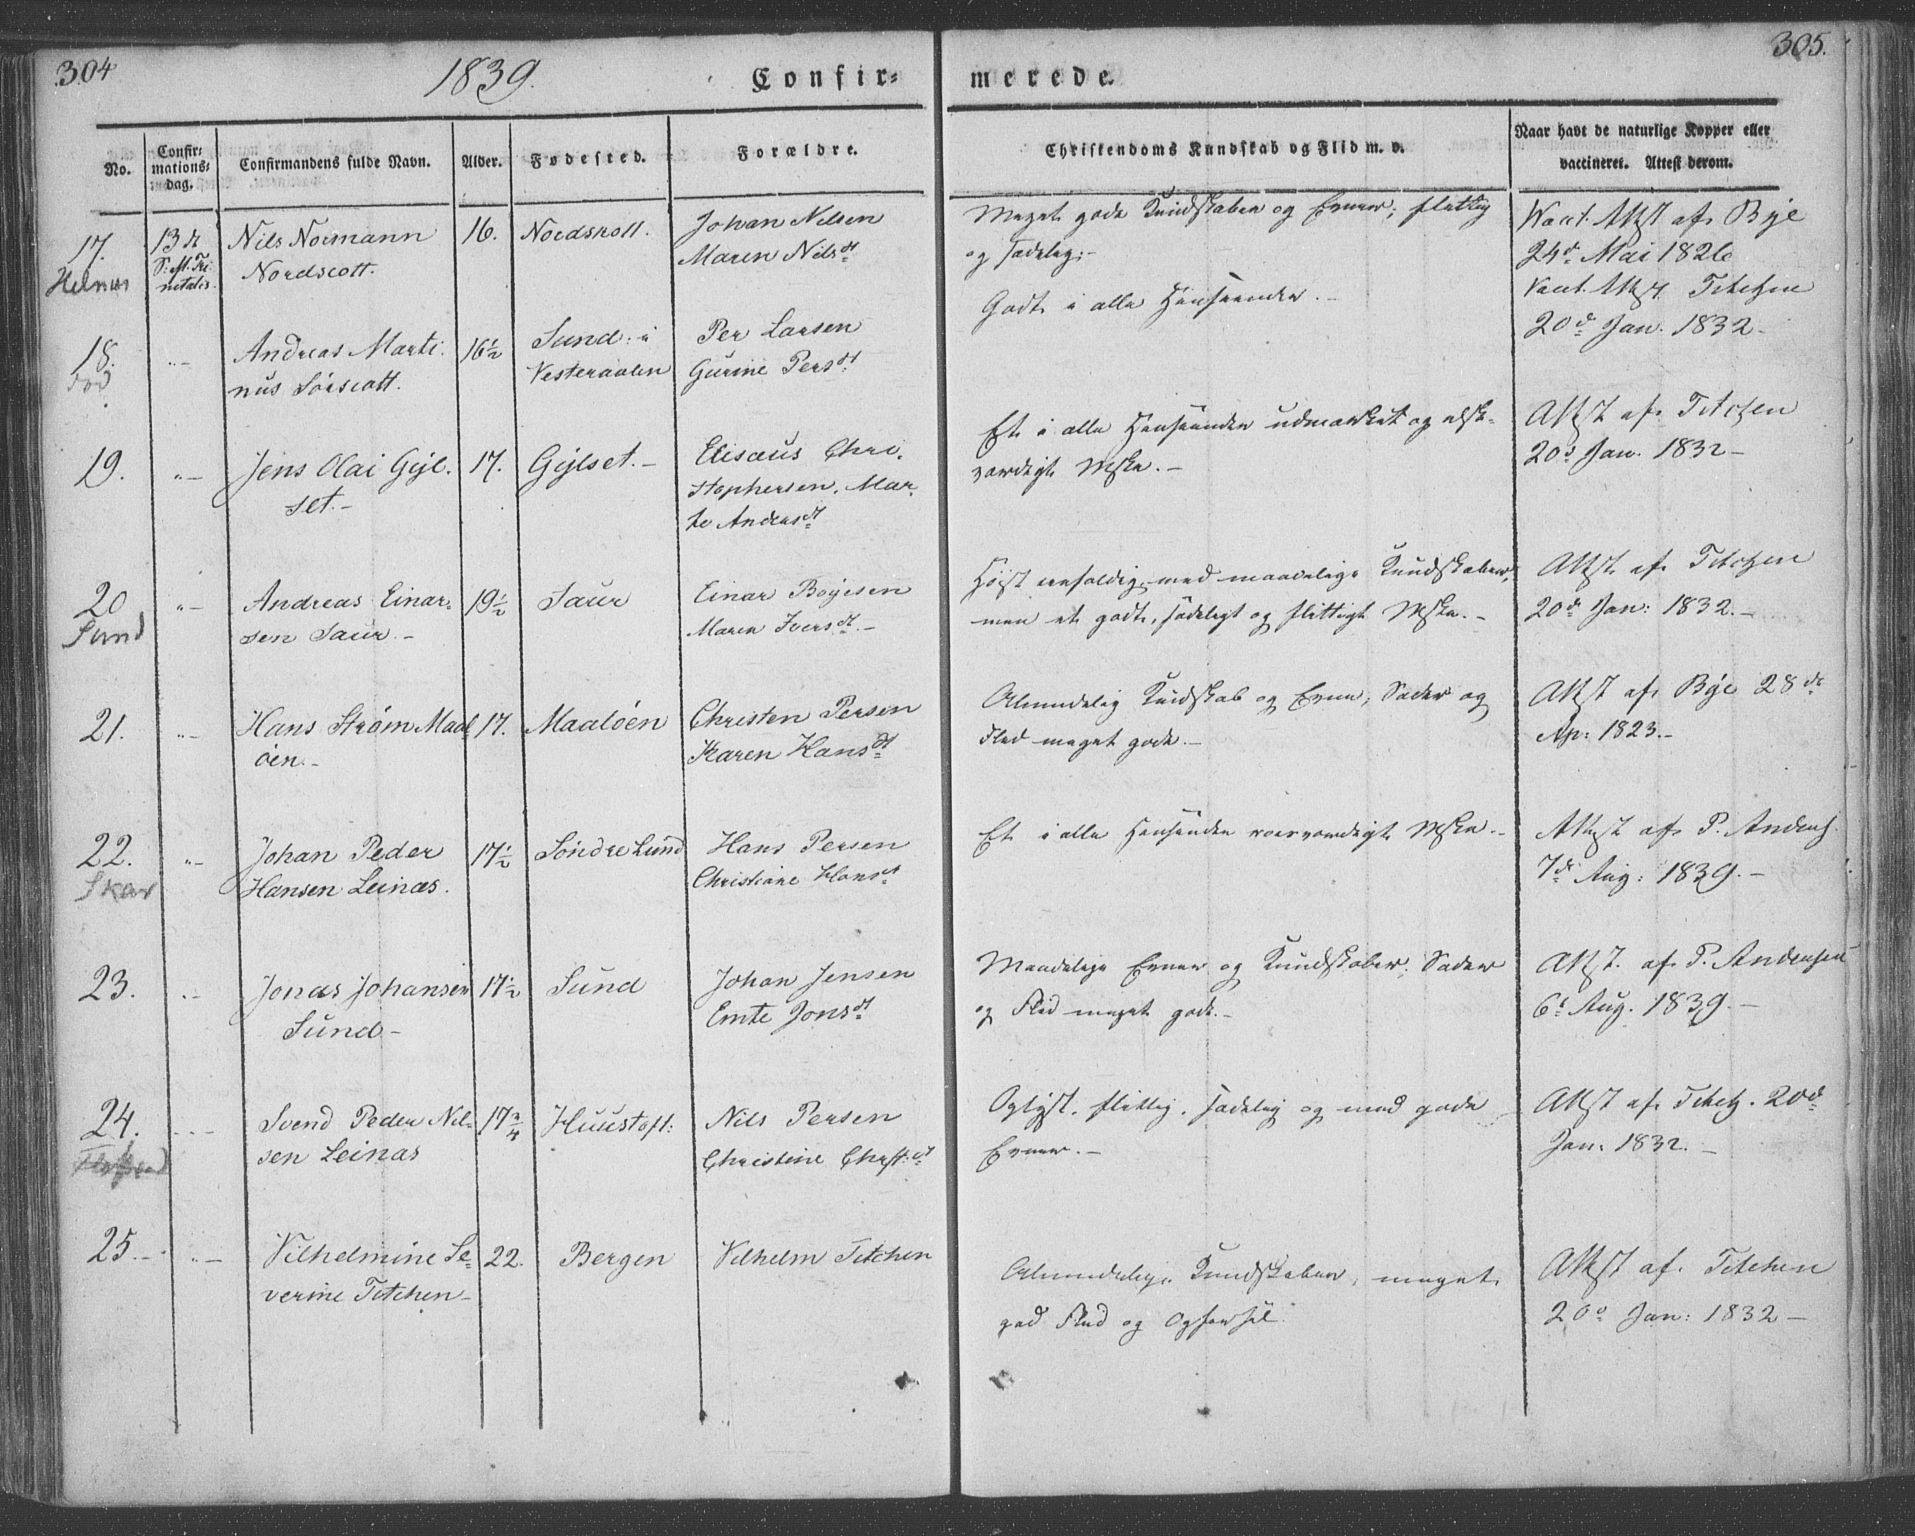 304
1839.
Confir=
merede.
305.
No.
Confir=
mations=
dag.
Confirmandens fulde Navn.
Alder.
Fødested.
Forældre.
Christendoms Kundskab og Flid m. v.
Naar havt de naturlige Kopper eller
vaccineret. Attest derom.
17.
Helnes
13de
S: eft. Tri
nitatis
Nils Normann
Nordscott.
16.
Nordskott.
Johan Nilsen
Maren Nilsdt
Meget gode Kundskaber og Evner, flittig
og sædelig.-
Vacc. Attst af Bye
24de Mai 1826
18.
Død
"-
Andreas Marti
nus Sørscott.
16½
Sund i
Vesteraalen
Per Larsen
Gurine Persdt
Godt i alle Henseender.-
Vacc. Attst. Titchen
20de Jan. 1832-
19.
"-
Jens Olai Gejl-
set.-
17.
Gejlset.-
Elisæus Chri-
stophersen, Mar-
te Andersdt
Et i alle Henseender udmærket og elsk-
værdigt Mske.-
Attst af Titchen
20d Jan. 1832-
20
Sund
"-
Andreas Einar-
sen Saur.-
19½
Saur
Einar Bøyesen
Maren Iversdt.-
Høist eenfoldig, med maadelige Kundskaber,
men et godt, sædeligt og flittigt Mske.-
Attst. af Titchen
20de Jan: 1832.-
21.
"-
Hans Strøm Maal
øen.-
17.
Maaløen
Christen Persen
Karen Hansdt
Almindelig Kundskab og Evne, Sæder og
Flid meget gode.-
Attst af Bye 28de
Ap: 1823.-
22.
Skar
"-
Johan Peder
Hansen Leinæs.
17½
Søndre Lund
Hans Persen
Christiane Hansdt
Et i alle Henseender roesværdigt Mske.-
Attst af P. Anders.
7de Aug: 1839.-
23.
"-
Jonas Johansen
Sund-
17½
Sund
Johan Jensen
Emte Jonsdt
Maadelige Evner og Kundskaber; Sæder
og Flid meget gode.-
Attst. af P. Andersen
6d Aug. 1839.-
24.
"-
Svend Peder Nil-
sen Leinæs
17¾
Huustoft:
Nils Persen
Christine Chrst.dt
Oplyst, flittig, sædelig og med gode
Evner.-
Attst af Titch. 20d
Jan. 1832.-
25.-
"-
Vilhelmine Se-
verine Titchen-
22.
Bergen
Vilhelm Titchen
Almindelige Kundskaber, meget
god Flid og Opførsel.
Attst af. Titchen
20d Jan: 1832-